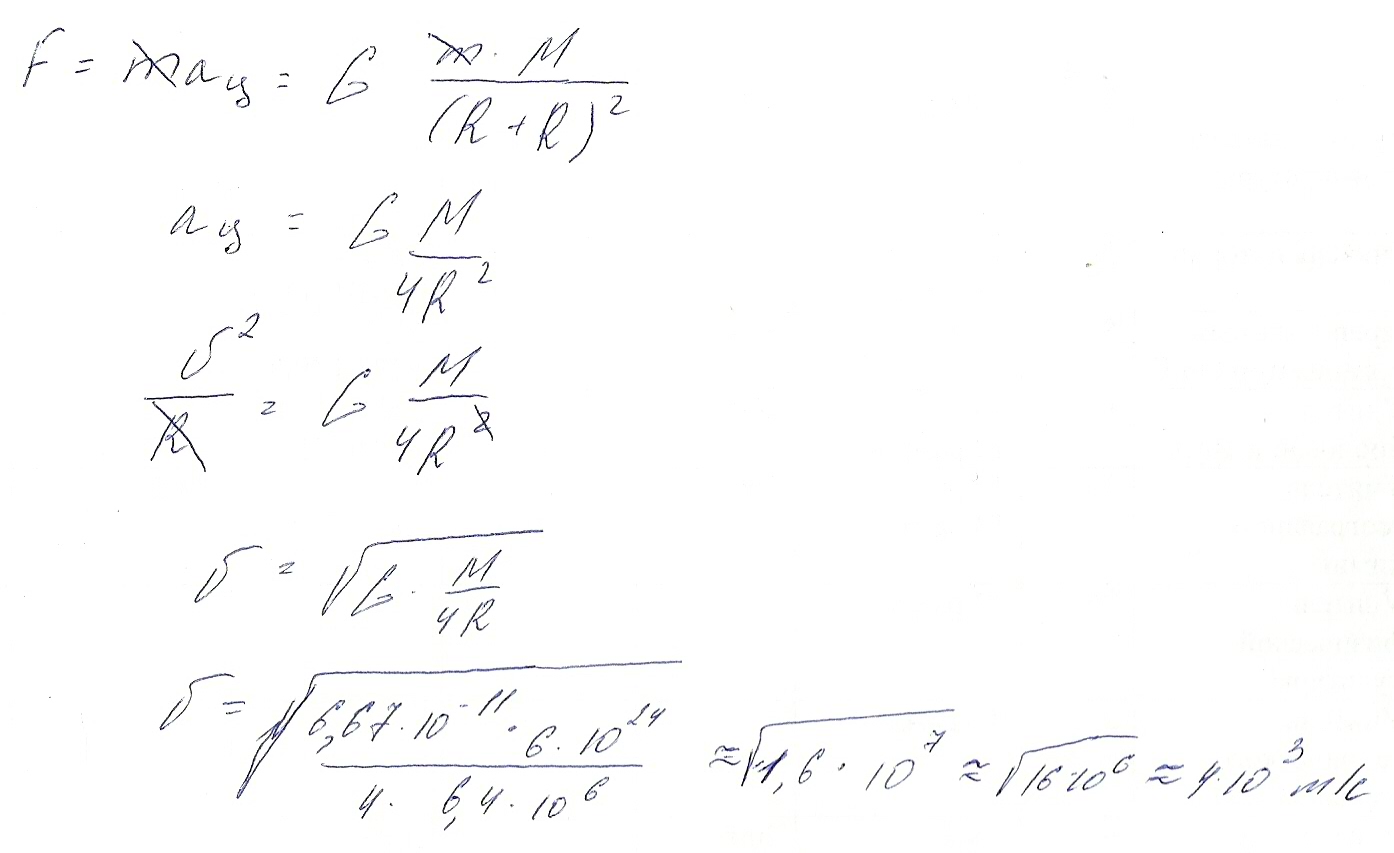 F = m a ц = G m · M / (R + R)²
a ц = G M / 4R²
υ² / R = G M / 4R²
υ = √(G · M / 4R)
υ = √(6,67 · 10⁻¹¹ · 6 · 10²⁴ / 4 · 6,4 · 10⁶) ≈ √(1,6 · 10⁷) ≈ √(16·10⁶) ≈ 4·10³ м/с